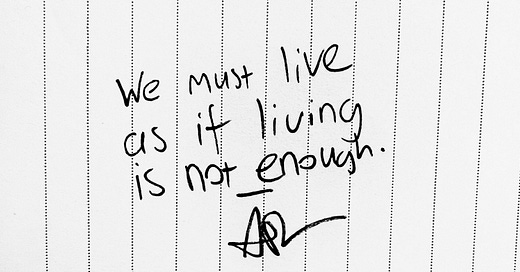 We must live
as if living
is not enough.